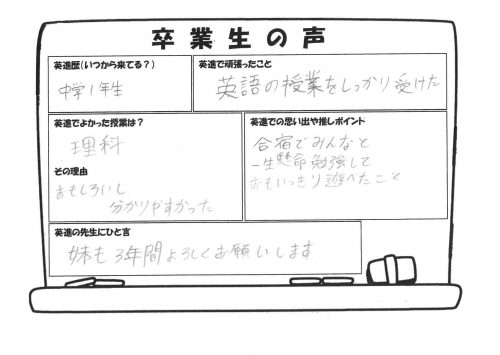 卒業生の声
英進歴(いつから来てる?)
中学1年生
英進で頑張ったこと
英語の授業をしっかり受けた
英進でよかった授業は?
理科
その理由
おもしろいし
分かりやすかった
英進での思い出や推しポイント
合宿でみんなと
一生懸命勉強して
おもいっきり遊べたこと
英進の先生にひと言
妹も3年間よろしくお願いします